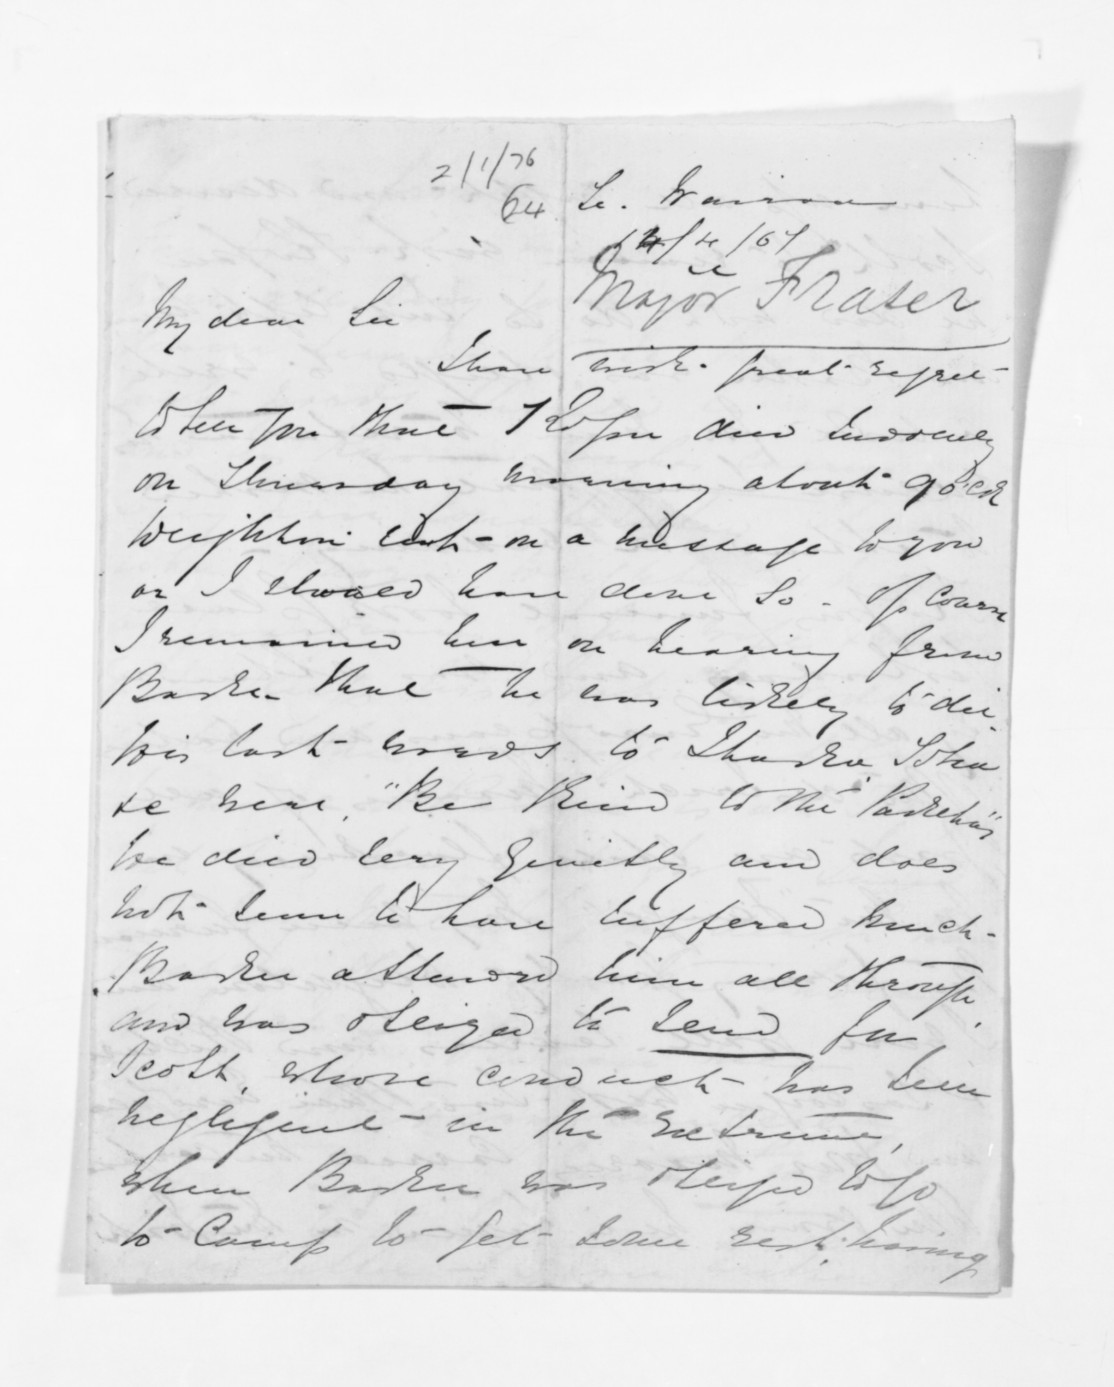 2/1/76
64
Te. Wairoa
14/4/67
Major Fraser
My dear Sir
I have with great regret
to tell you that died suddenly
on Thursday morning about 9 o'clk
Deighton sent on a message to you
or I should have done so. Of course
I remained here on hearing from
Barker that he was likely to die
his last words to Ihaka
&c were, "Be Kind to the Pakehas"
he died very quietly and does
not seem to have suffered much.
Barker attended him all through,
and was obliged to send for
Scott, whose conduct has been
negligent in the extreme,
when Barker was obliged to go
to Camp to get some rest, having